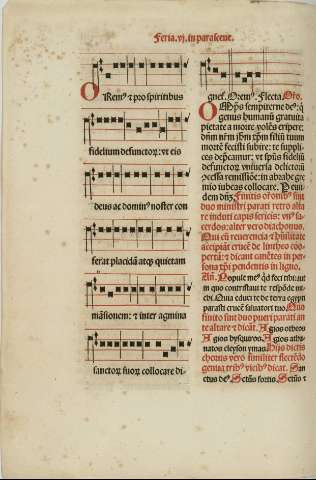 Feria. vj. in parasceue.
ORemꝰ ⁊ pro spiritibus
fidelium defunctoꝝ: vt eis
deus ac dominꝰ noster con
ferat placidā atqꝫ quietam
māsionem: ⁊ inter agmina
sanctoꝝ suoꝝ collocare di-
gnet. Oremꝰ. Flecta. Oro.
OMp̄s sempiterne deꝰ: q̇
genus humanū gratuita
pietate a morte volēs eripere:
dn̄m nr̄m ihm̄ xp̄m filiū tuum
mortē fecisti subire: te supplici
ces dep̄camur: vt sp̄us fideliū
defunctoꝝ vniuersa delictoꝝ
remissiōe: in abrahe gre
mio iubeas collocare. P eun
dem dn̄ꝫ. Finitis orōnibꝰ sint
duo ministri parati retro alta
re induti capis sericeis: vnꝰ sa
cerdos: alter vero diachonus.
Qui cū reuerentia ⁊ hūilitate
accipiāt crucē de lintheo coo
pertā: ⁊ dicant cātētes in per-
sona xp̄i pendentis in ligno.
Popule meꝰ qd̄ feci tibi: aut
in quo contristaui te: respōde mi-
chi. Quia eduxi te de terra egypti
parasti crucē saluatori tuo. Quo
finito sint duo pueri parati an
te altare ⁊ dicāt. Agios otheos
Agios ysquyros. Agios atha-
natos eleyson ymas. Hijs dictis
chorus vero similiter flectēdo
genua tribꝰ vicibꝰ dicat. San
ctus deꝰ. Sctūs fortis. Sctūs ⁊